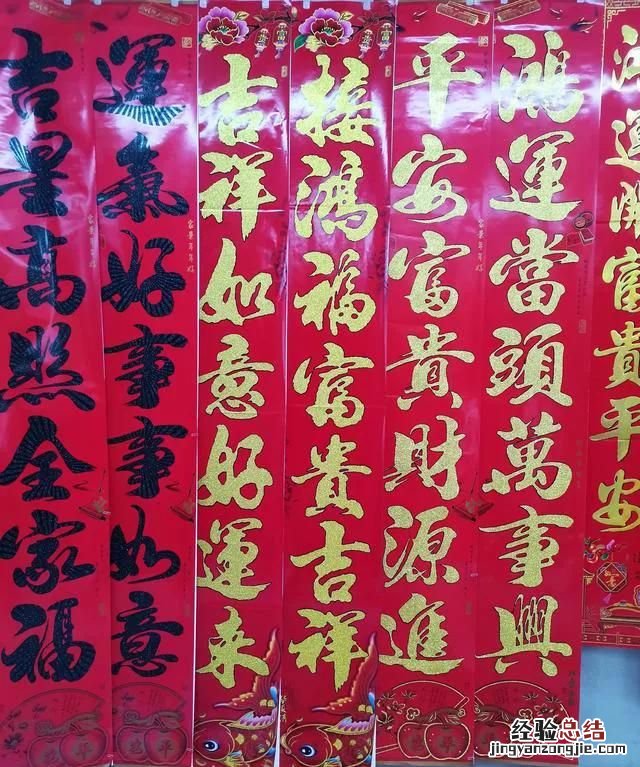 運開富貴平安
鴻運當頭萬事興
平安富貴財源進
接鴻福富貴吉祥
吉祥如意好運来
運氣好事事如意
吉星高照全家福
经验总结
jingyanzongjie.com